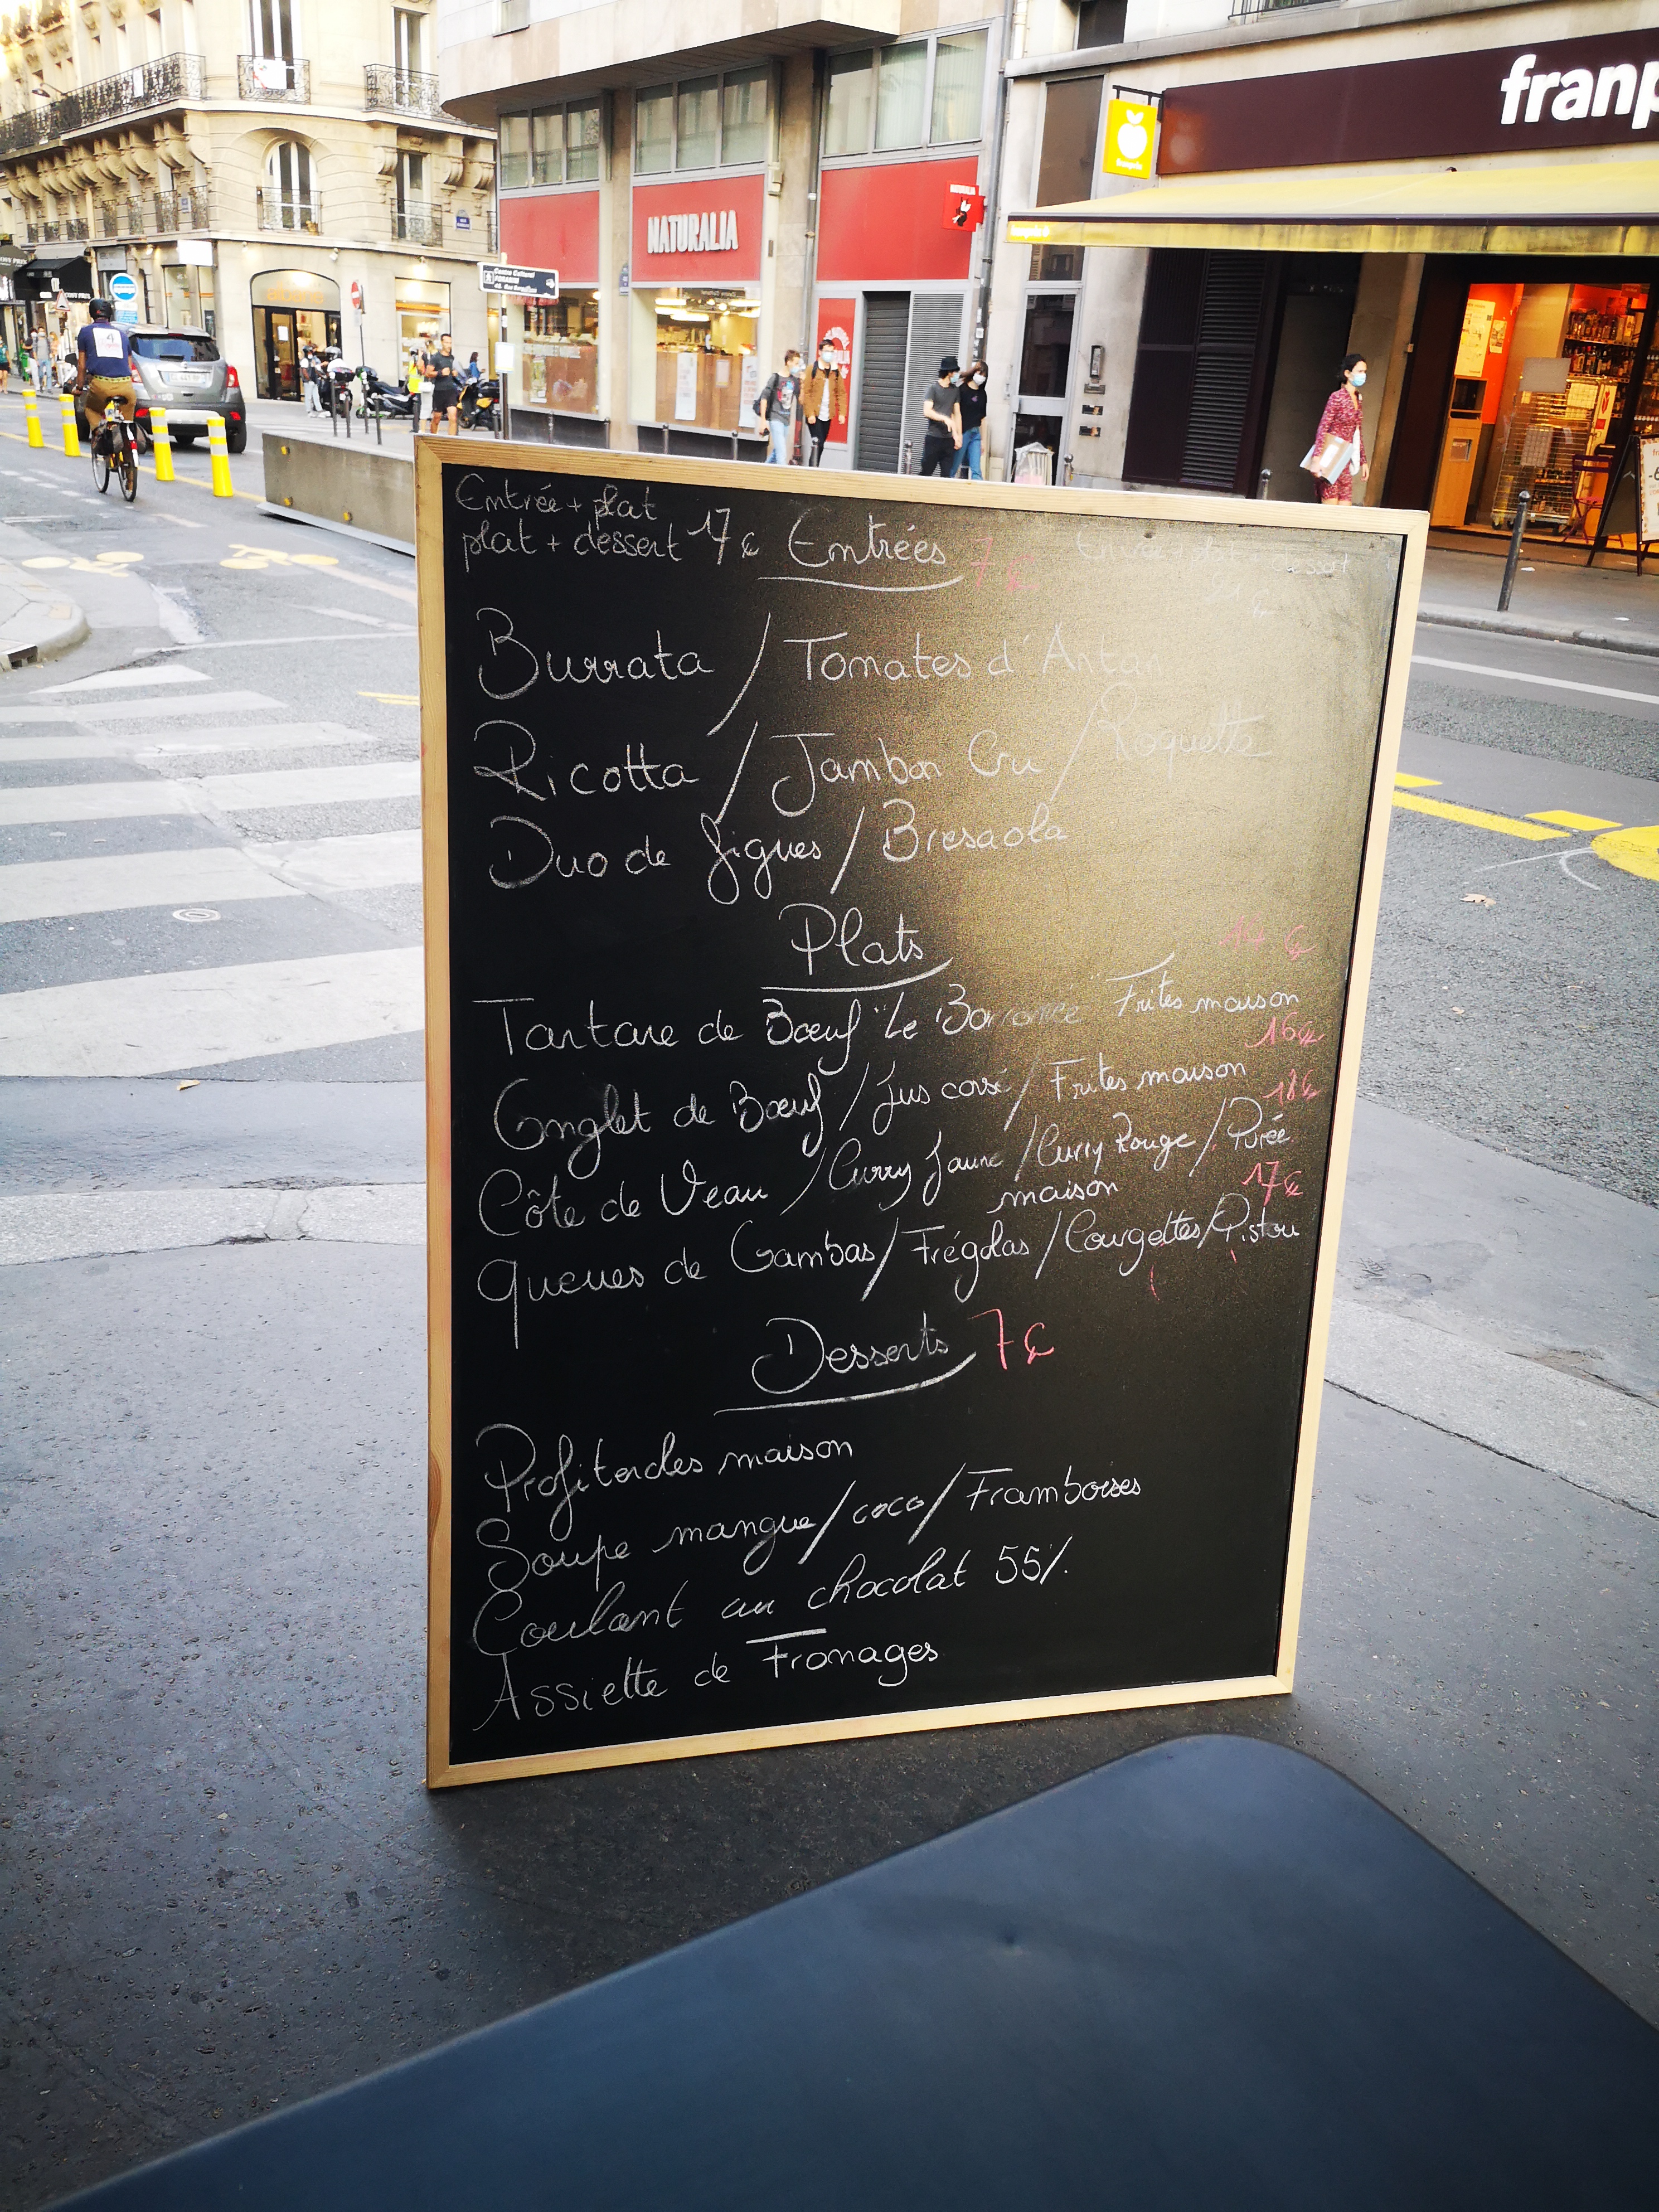 franp
NATURALIA
NATURALIA
franprix
Centre Culturel
Entrée + plat
plat + dessert 17€
Entrées 7€
Entrée plat dessert
Burrata / Tomates d'Antan
Ricotta / Jambon Cru / Roquette
Duo de figues / Bresaola
Plats
14 €
Tartare de Bœuf "Le Borromée Frites maison
16€
Onglet de Bœuf / Jus corsé / Frites maison
18€
Côte de Veau / Curry Jaune / Curry Rouge / Purée
maison
17€
queues de Gambas / Frégolas / Courgettes / Pistou
Desserts 7€
Profiteroles maison
Soupe mangue / coco / Framboises
Coulant au chocolat 55%
Assiette de Fromages